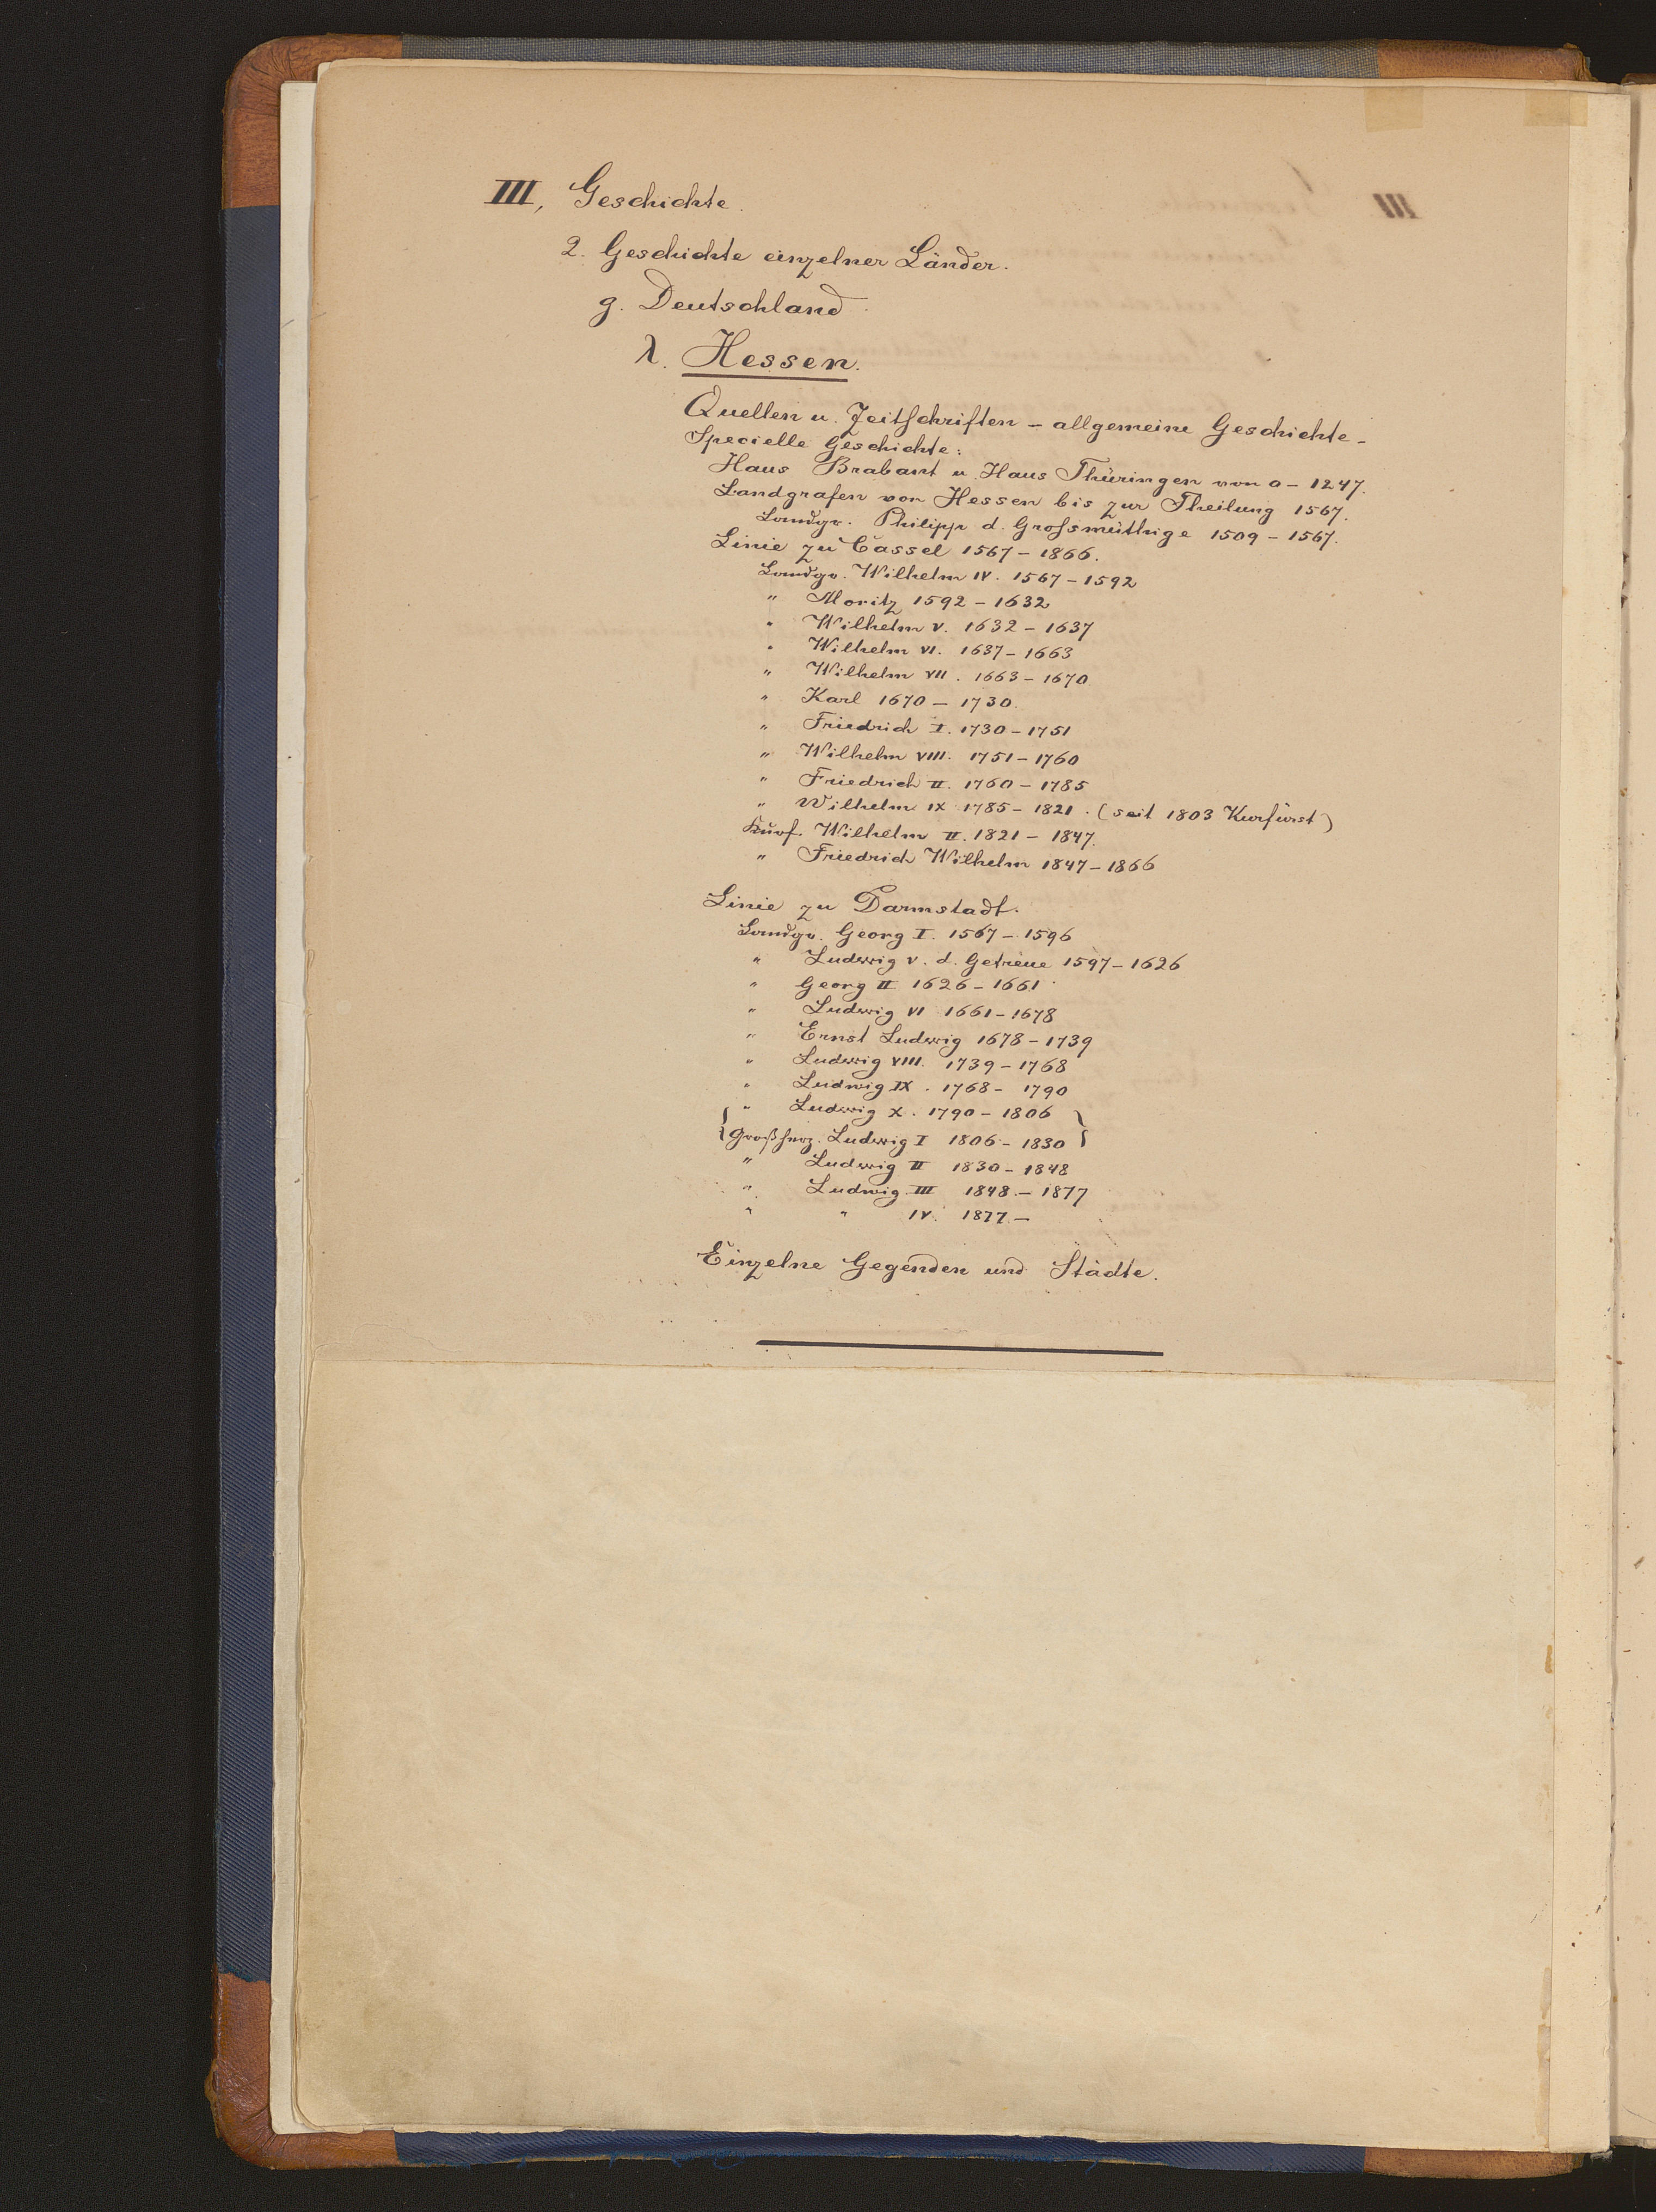 III, Geschichte.
2. Geschichte einzelner Länder.
g. Deutschland.
λ. Hessen.
Quellen u. Zeitschriften – allgemeine Geschichte –
Specielle Geschichte:
Haus Brabant u. Haus Thüringen von 0 – 1247.
Landgrafen von Hessen bis zur Theilung 1567.
Landgr. Philipp d. Grossmüthige 1509 – 1567.
Linie zu Cassel 1567 – 1866.
Landgr. Wilhelm IV. 1567 – 1592
" Moritz 1592 – 1632
" Wilhelm V. 1632 – 1637
" Wilhelm VI. 1637 – 1663
" Wilhelm VII. 1663 – 1670
" Karl 1670 – 1730.
" Friedrich I. 1730 – 1751
" Wilhelm VIII. 1751 – 1760
" Friedrich II. 1760 – 1785
" Wilhelm IX 1785 – 1821. (seit 1803 Kurfürst)
Kurf. Wilhelm II. 1821 – 1847.
" Friedrich Wilhelm 1847 – 1866
Linie zu Darmstadt.
Landgr. Georg I. 1567 – 1596
" Ludwig V. d. Getreue 1597 – 1626
" Georg II 1626 – 1661
" Ludwig VI 1661 – 1678
" Ernst Ludwig 1678 – 1739
" Ludwig VIII. 1739 – 1768
" Ludwig IX. 1768 – 1790
{ " Ludwig X. 1790 – 1806 }
{ Großherz. Ludwig I 1806 – 1830 }
" Ludwig II 1830 – 1848
" Ludwig III 1848. – 1877
" " IV. 1877. –
Einzelne Gegenden und Städte.